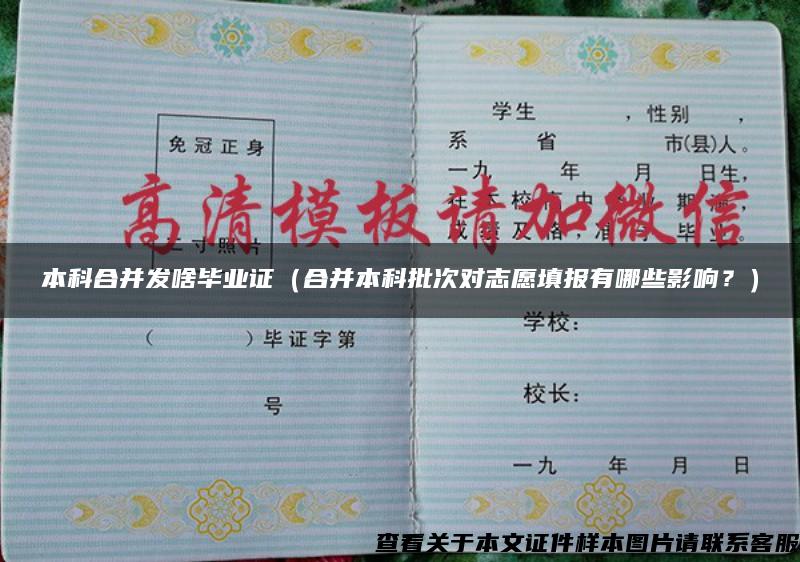 免冠正身
二寸照片
（　　　）毕证字第
号
学生　　　，性别　，
系　　省　　　市(县)人。
一九　　年　　月　　日生，
高清模板请加微信
本科合并发啥毕业证（合并本科批次对志愿填报有哪些影响？）
学校：
校长：
一九　　年　　月　　日
查看关于本文证件样本图片请联系客服